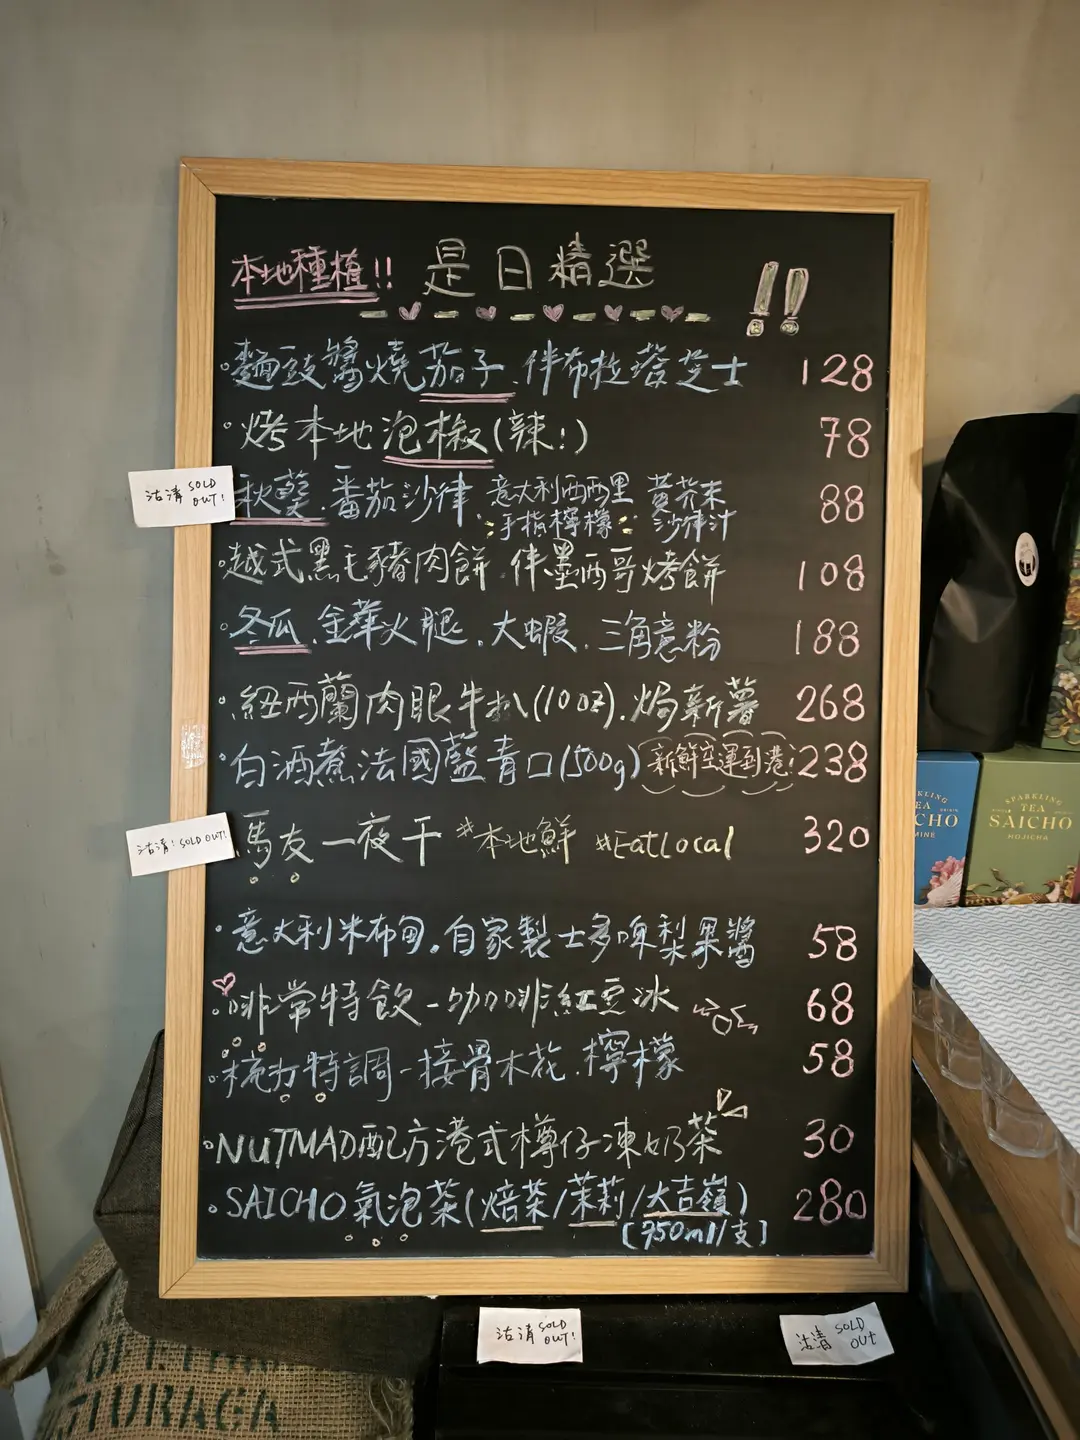 本地種植!! 是日精選 !!
麵豉醬燒茄子.伴布拉塔芝士 128
烤本地泡椒(辣!) 78
沽清 SOLD OUT!
秋葵.番茄沙律.意大利西西里手指檸檬.黃芥末沙律汁 88
越式黑毛豬肉餅.伴墨西哥烤餅 108
冬瓜.金華火腿.大蝦.三角意粉 188
紐西蘭肉眼牛扒(10oz).焗新薯 268
白酒煮法國藍青口(500g) 新鮮空運到港! 238
沽清! SOLD OUT!
馬友一夜干 #本地鮮 #EatLocal 320
意大利米布甸.自家製士多啤梨果醬 58
啡常特飲-咖啡紅豆冰 68
梳打特調-接骨木花.檸檬 58
NUTMAD配方港式樽仔凍奶茶 30
SAICHO氣泡茶(焙茶/茉莉/大吉嶺) 280
[750ml/支]
沽清 SOLD OUT!
沽清 SOLD OUT
SPARKLING
TEA
SAICHO
HOJICHA
KLING
EA
CHO
MINE
TURAGA